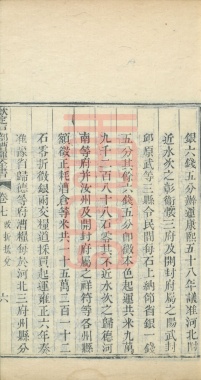 銀六錢五分辦運康熙二十八年議准河北附
近水次之彰衛懷三府及開封府屬之陽武封
邱原武等三縣令民間每石上納節省銀 錢
五分其餘六錢五分仍徵本色起運共米九萬
九千二百八十八石零其不近水次之歸德河
南等府并汝州及開封府屬之祥符等各州縣
額徵正耗漕倉等米共一十五萬二百一十二
石零折徵銀兩交糧道採買起運雍正六年奏
准豫省歸德等府漕糧分於河北三府州縣分
卷七 改折撥兌
六